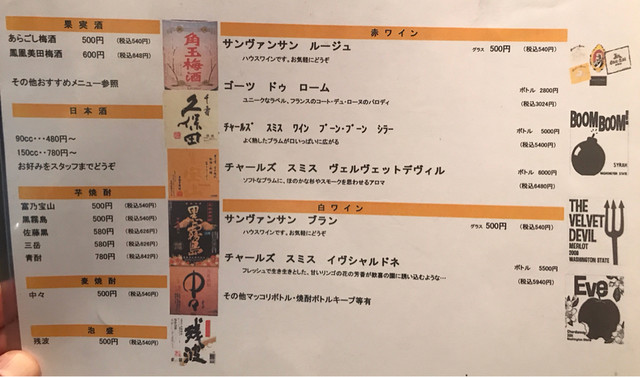 果実酒
あらごし梅酒 500円 (税込540円)
鳳凰美田梅酒 600円 (税込648円)
その他おすすめメニュー参照
日本酒
90cc・・・480円～
150cc・・・780円～
お好みをスタッフまでどうぞ
芋焼酎
富乃宝山 500円 (税込540円)
黒霧島 500円 (税込540円)
佐藤黒 580円 (税込626円)
三岳 580円 (税込626円)
青酎 780円 (税込842円)
麦焼酎
中々 500円 (税込540円)
泡盛
残波 500円 (税込540円)
角玉梅酒
久保田
黒霧島
中々
残波
赤ワイン
サンヴァンサン ルージュ グラス 500円 (税込540円)
ハウスワインです。お気軽にどうぞ
ゴーツ ドゥ ローム ボトル 2800円
ユニークなラベル、フランスのコート・デュ・ローヌのパロディ (税込3024円)
チャールズ スミス ワイン ブーン・ブーン シラー ボトル 5000円
よく熟したプラムが口いっぱいに広がる (税込5400円)
チャールズ スミス ヴェルヴェットデヴィル ボトル 6000円
ソフトなプラムに、ほのかな杉やスモークを思わせるアロマ (税込6480円)
白ワイン
サンヴァンサン ブラン グラス 500円 (税込540円)
ハウスワインです。お気軽にどうぞ
チャールズ スミス イヴシャルドネ ボトル 5500円
フレッシュで生き生きとした、甘いリンゴの花の芳香が歓喜の園に誘い込むような… (税込5940円)
その他マッコリボトル・焼酎ボトルキープ等有
BOOM BOOM!
SYRAH
WASHINGTON STATE
THE
VELVET
DEVIL
MERLOT
2008
WASHINGTON STATE
Eve
Chardonnay